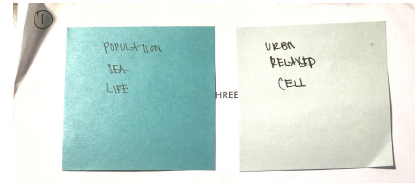 1
POPULATION
SEA
LIFE
HREE
URBN
RELAXED
CELL